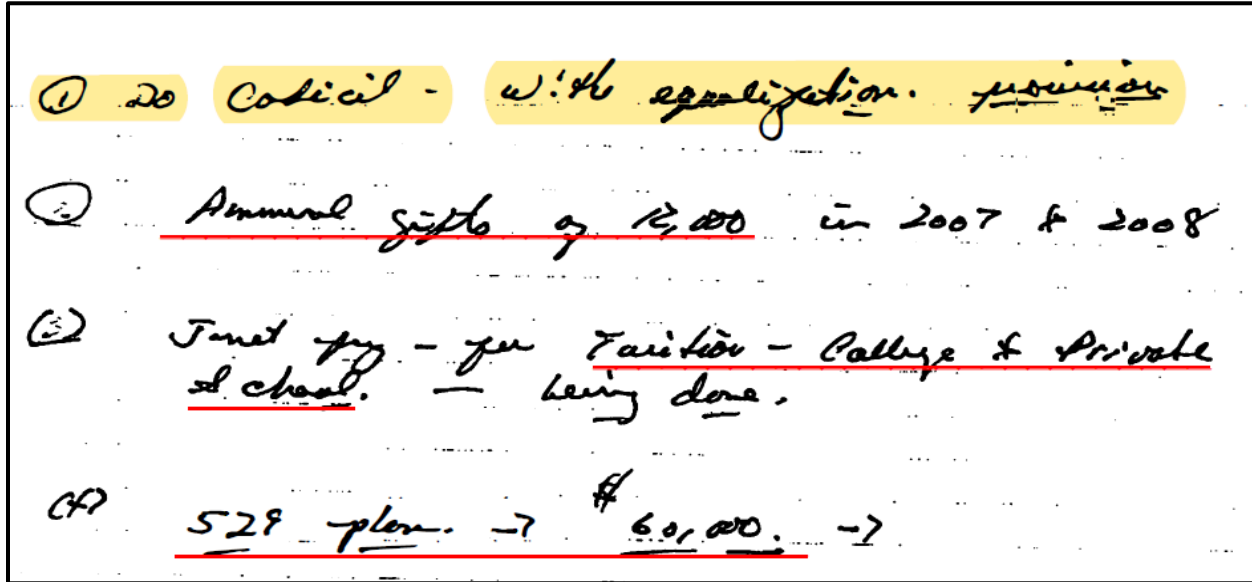 ① Do Codicil - with equalization. provision
② Annual gifts of 12,000 in 2007 & 2008
③ Janet pay - for Tuition - College & Private
School. - being done.
(4) 529 plan. → $60,000. →